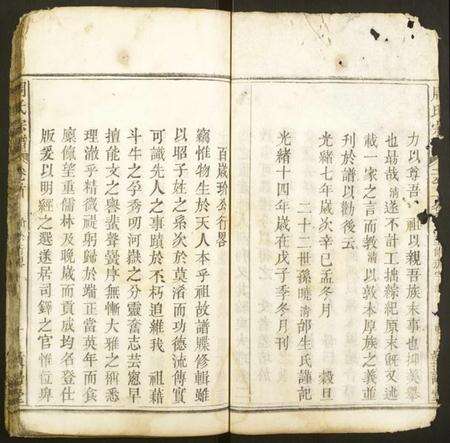 力以尊吾 祖以親吾族末事也抑義舉
也曷哉 清遂不計工拙綜紀原末旣又述
載一家之言而教 清以敦本厚族之義並
刋於譜以勸後云
光緒七年歲次辛巳孟冬月 穀旦
二十二世孫曉清 邰生氏謹記
光緒十四年歲在戊子季冬月刊
百歲 公行畧
竊惟物生於天人本乎祖故譜牒修輯雖
以昭子姓之系次於莫淆而功德流傳實
可識先人之事蹟於不朽追維我 祖藉
斗牛之孕秀明河嶽之分靈奮志芸窻早
擅能文之譽蜚聲黌序無慚大雅之稱悉
理澈乎精微禔躬歸於端正當英年而食
廩佩望重儒林及晚歲而貢成均名登仕
版爰以明經之選遂居司鐸之官惟位卑
周氏宗譜